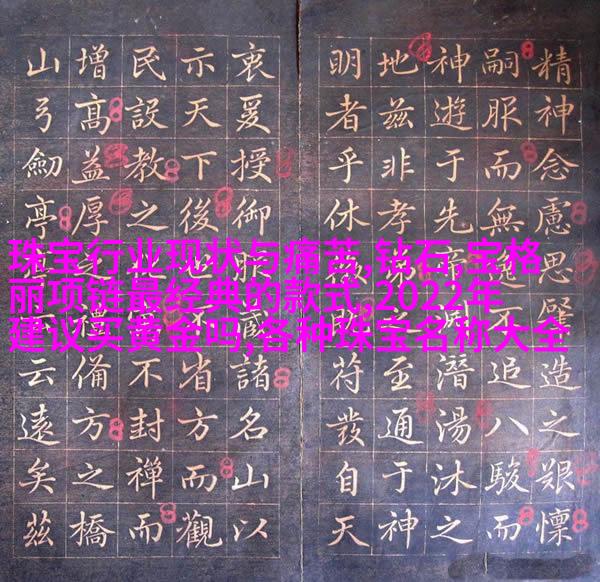 精神念慮思肇造之艱懍
嗣服而無追八駿而
神遊于先潛湯沐之
地茲非孝至通于神
明者乎休符發自天
衷爰授御服諸名山以
示天下後省方而觀
民設教之不封禪而
增高益厚備方之橋
山弓劍亭云遠矣茲
珠宝行业现状与痛苦,钻石,宝格
丽项链最经典的款式,2022年
建议买黄金吗,各种珠宝名称大全